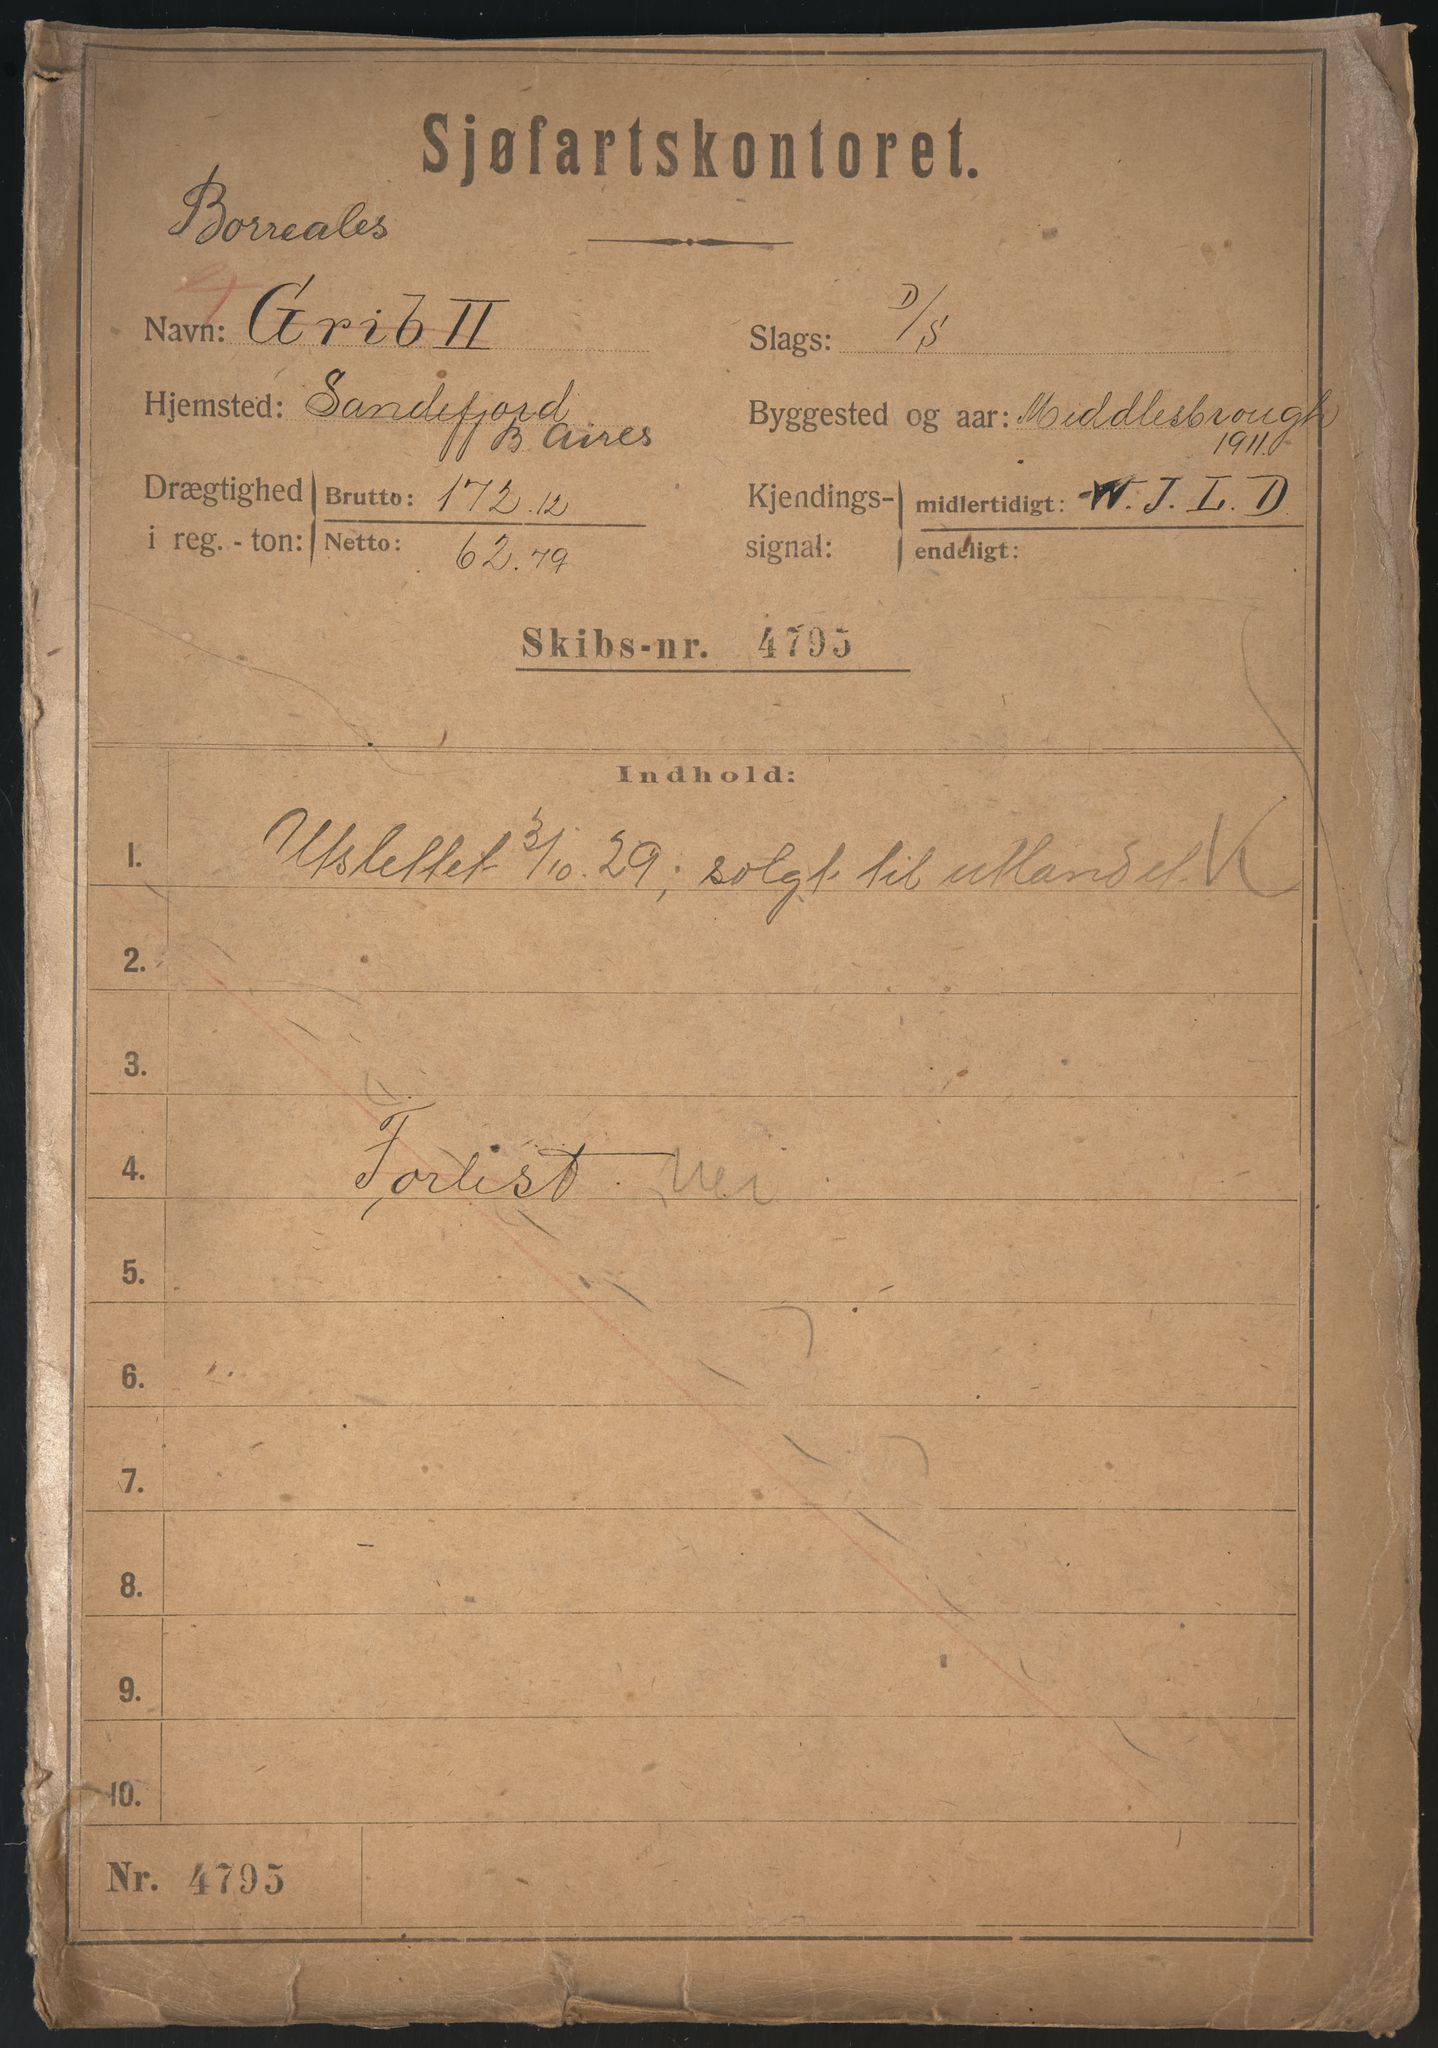 Sjøfartskontoret.
Borreales
Navn: Grib II
Slags: D/S
Hjemsted: Sandefjord
B Aires
Byggested og aar: Middlesbrough
1911.
Drægtighed i reg.-ton: Brutto: 172.12
Netto: 62.79
Kjendings-signal: midlertidigt: W.J.L.D
endeligt:
Skibs-nr. 4795
Indhold:
1. Utslettet 3/10.29; solgt til utlandet
2.
3.
4. Forlist. Nei
5.
6.
7.
8.
9.
10.
Nr. 4795